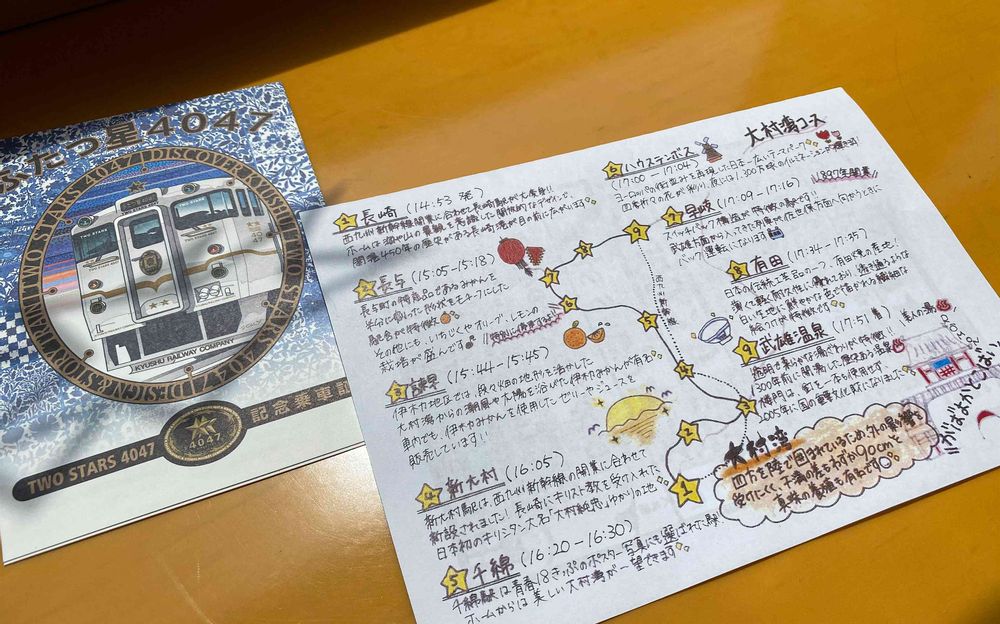 ふたつ星4047
TWO STARS 4047
KYUSHU RAILWAY COMPANY
TWO STARS 4047
4047
大村湾コース
1 長崎 (14:53 発)
西九州新幹線開業に合わせて長崎駅が大変身!!
ホームは海や山の景観を意識した開放的なデザインで、
開港450年の歴史がある長崎港が目の前に広がります
2 長与 (15:05-15:18)
長与町の特産品であるみかんを
半分に切った形状をモチーフにした
駅舎が特徴的
その他にも、いちじくやオリーブ、レモンの
栽培が盛んです
3 諫早 (15:44-15:45)
伊木力地区では、段々畑の地形を活かした
大村湾からの潮風や太陽を浴びた伊木力みかんが有名
車内でも、伊木力みかんを使用したゼリーやジュースを
販売しています!!
4 新大村 (16:05)
新大村駅は、西九州新幹線の開業に合わせて
新設されました! 長崎にキリスト教を受け入れた
日本初のキリシタン大名「大村純忠」ゆかりの地
5 千綿 (16:20-16:30)
千綿駅は青春18きっぷのポスター写真にも選ばれた駅
ホームからは美しい大村湾が一望できます
6 ハウステンボス
(17:00-17:04)
ヨーロッパの街並みを再現した日本一広いテーマパーク
7 早岐 (17:09-17:16)
1897年開業
スイッチバック構造が特徴の駅です
バック運転になります
8 有田 (17:34-17:35)
日本の伝統工芸品の一つ、有田焼の産地!
薄くて軽く耐久性に優れており、透き通るような
白い生地に鮮やかな色で描かれる繊細な
絵付けが特徴です
9 武雄温泉 (17:51着)
美人の湯
透明で柔らかな湯ざわりが特徴!!
1300年前に開湯した歴史ある温泉
楼門は、釘を一本も使用せず
2005年に国の重要文化財になりました
西九州新幹線
大村湾
四方を陸で囲まれているため、外の影響を
受けにくく、干満の差もわずか90cmと
真珠の養殖も有名です
がばあったとばい